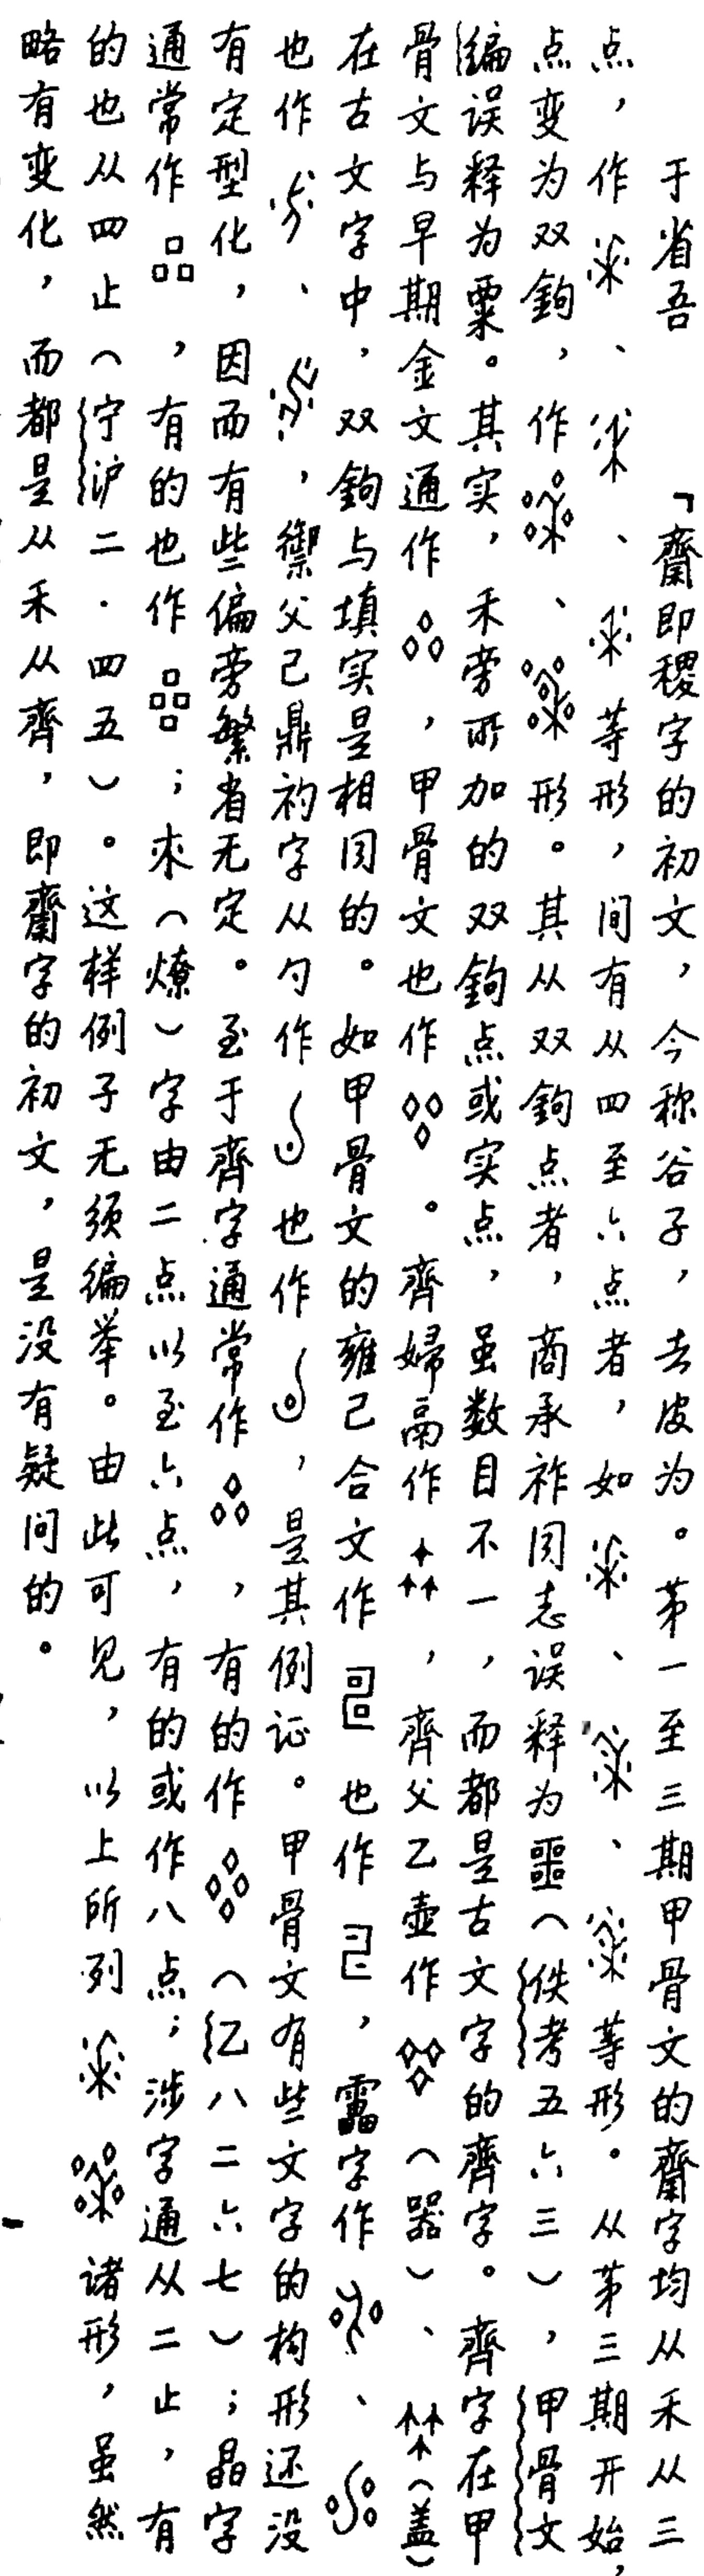 于省吾 「齋即稷字的初文，今称谷子，去皮为。苐一至三期甲骨文的齋字均从禾从三
点，作、、等形，间有从四至六点者，如、、等形。从苐三期开始，
点变为双鉤，作、形。其从双鉤点者，商承祚同志误释为噩（佚考五六三），甲骨文
编误释为粟。其实，禾旁所加的双鉤点或实点，虽数目不一，而都是古文字的齊字。齊字在甲
骨文与早期金文通作，甲骨文也作。齊婦鬲作，齊父乙壺作（器）、（盖）
在古文字中，双鉤与填实是相同的。如甲骨文的雍己合文作也作，靁字作、
也作、，禦父己鼎礿字从勺作也作，是其例证。甲骨文有些文字的构形还没
有定型化，因而有些偏旁繁省无定。至于齊字通常作，有的作（乙八二六七）；晶字
通常作，有的也作；尞（燎）字由二点以至六点，有的或作八点；涉字通从二止，有
的也从四止（宁沪二·四五）。这样例子无须编举。由此可见，以上所列诸形，虽然
略有变化，而都是从禾从齊，即齋字的初文，是没有疑问的。